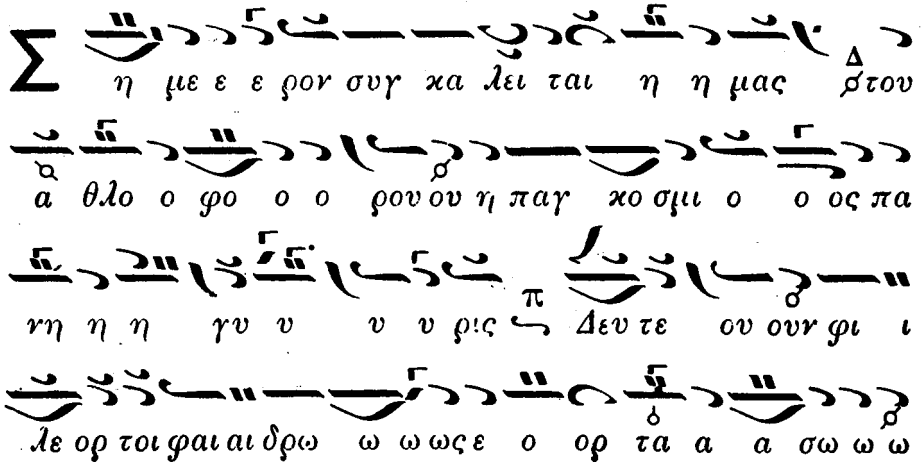 Σ η με ε ε ρον συγ κα λει ται η η μας Δ του
α θλο ο φο ο ο ρου ου η παγ κο σμι ο ο ος πα
νη η η γυ υ υ υ ρις π Δευ τε ου ουν φι ι
λε ορ τοι φαι αι δρω ω ω ως ε ο ορ τα α α σω ω ω